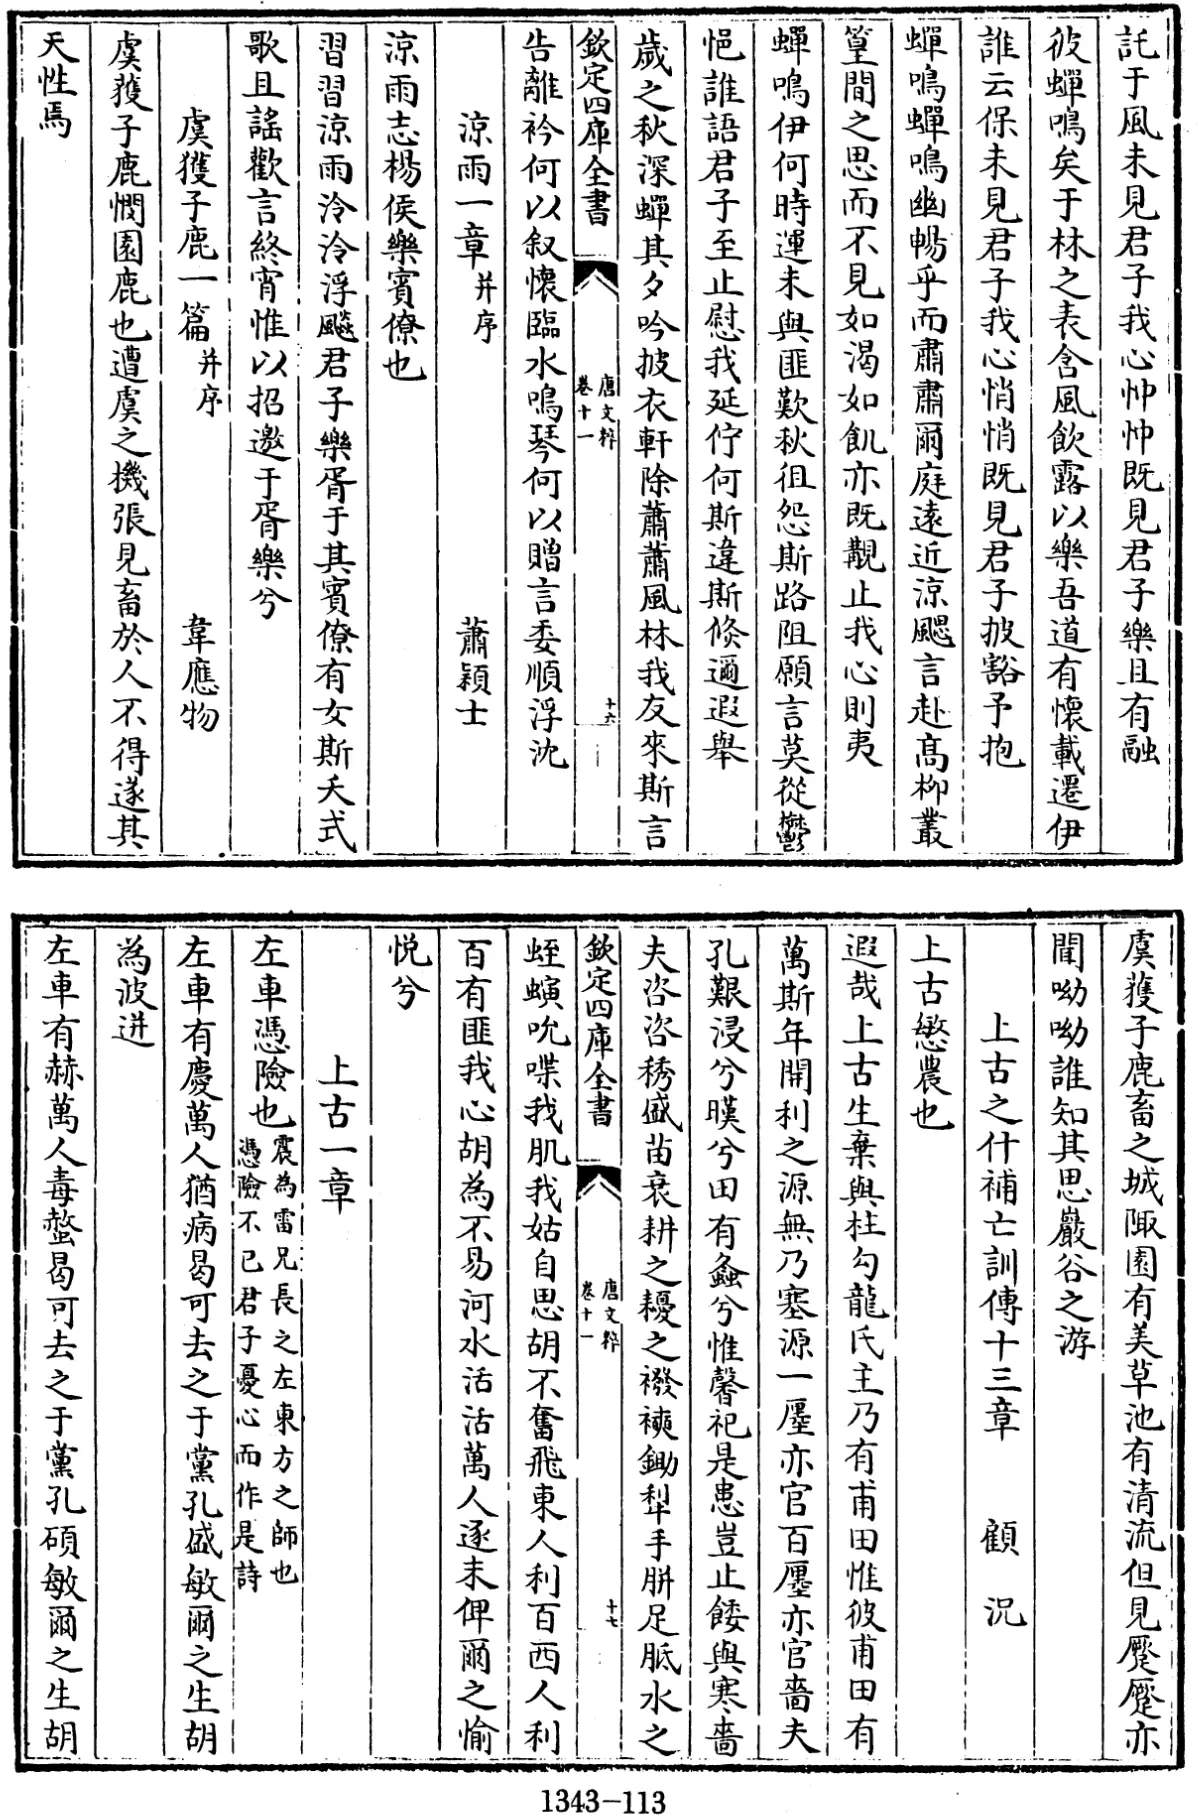 託于風未見君子我心忡忡既見君子樂且有融
彼蟬鳴矣于林之表含風飲露以樂吾道有懷載遷伊
誰云保未見君子我心悄悄既見君子披豁予抱
蟬鳴蟬鳴幽暢乎而肅肅爾庭遠近涼颸言赴高柳叢
篁間之思而不見如渴如飢亦既覯止我心則夷
蟬鳴伊何時運未與匪歎秋徂怨斯路阻願言莫從鬱
悒誰語君子至止慰我延佇何斯違斯倐邇遐舉
歲之秋深蟬其夕吟披衣軒除蕭蕭風林我友來斯言
欽定四庫全書
唐文粹
卷十一
十六
告離衿何以叙懷臨水鳴琴何以贈言委順浮沈
涼雨一章并序 蕭穎士
涼雨志楊侯樂賓僚也
習習涼雨泠泠浮飈君子樂胥于其賓僚有女斯夭式
歌且謡歡言終宵惟以招邀于胥樂兮
虞獲子鹿一篇并序 韋應物
虞獲子鹿憫園鹿也遭虞之機張見畜於人不得遂其
天性焉
虞獲子鹿畜之城陬園有美草池有清流但見蹷蹷亦
聞呦呦誰知其思巖谷之游
上古之什補亡訓傳十三章 顧況
上古愍農也
遐哉上古生棄與柱勾龍氏主乃有甫田惟彼甫田有
萬斯年開利之源無乃塞源一廛亦官百廛亦官嗇夫
孔艱浸兮暵兮田有螽兮惟馨祀是患豈止餧與寒嗇
夫咨咨秀盛苗衰耕之耰之襏襫鋤犁手胼足胝水之
欽定四庫全書
唐文粹
卷十一
十七
蛭螾吮喋我肌我姑自思胡不奮飛東人利百西人利
百有匪我心胡為不易河水活活萬人逐末俾爾之愉
悦兮
上古一章
左車憑險也震為雷兄長之左東方之師也
憑險不已君子憂心而作是詩
左車有慶萬人猶病曷可去之于黨孔盛敏爾之生胡
為波迸
左車有赫萬人毒螫曷可去之于黨孔碩敏爾之生胡
1343-113